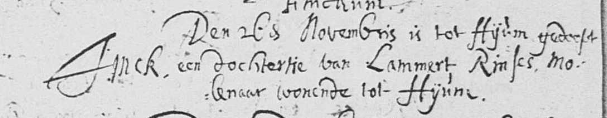 Den 26 Novembris is tot Hijum gedoopt
Anck, een dochtertie van Lammert Rinses, mo-
lenaar wonende tot Hijum.